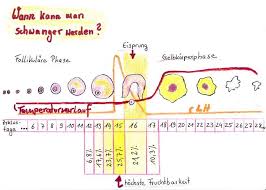 Wann kann man
Schwanger werden?
Eisprung
Follikuläre Phase
Gelbkörperphase
Temperaturverlauf
Zyklus-
tage
6 7 8 9 10 11 12 13 14 15 16 17
6,8%
17,6%
23,7%
25,7%
21,2%
10,3%
höchste Fruchtbarkeit